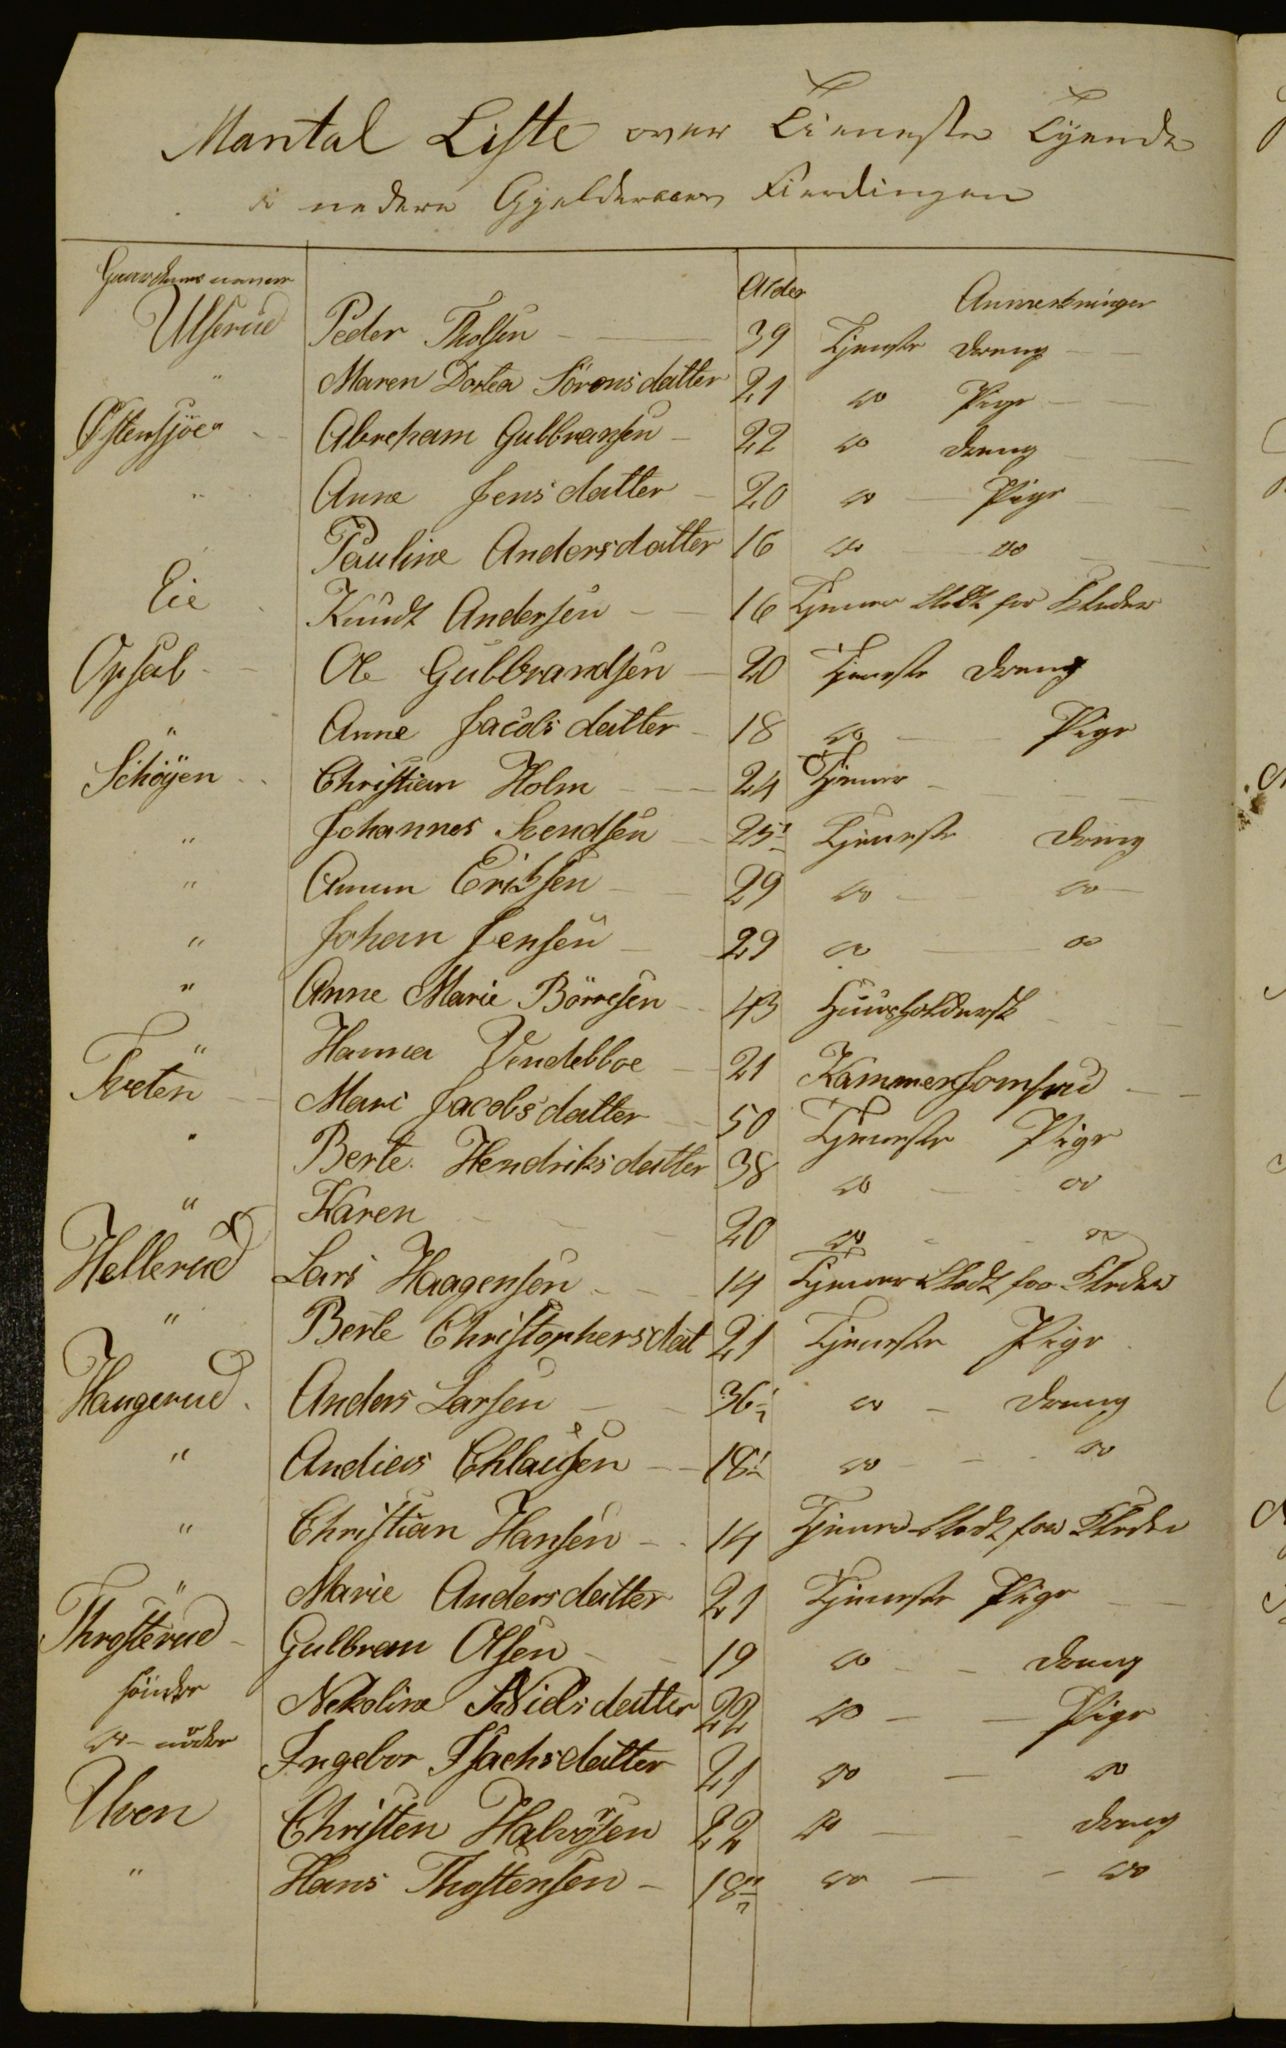 Mantal Liste over Tieneste Tyende
i nedere Gjelderaas Fierdingen
Gaardenes navne Alder Anmerkninger
Ulserud Peder Tholsen — 39 Tjeneste Dreng —
" Maren Dortea Sörensdatter 21 do Pige —
Østensjöe Abreham Gulbransen — 22 do Dreng —
" Anne Jensdatter — 20 do — Pige
Pauline Andersdatter 16 do — do
Eie Knudt Andersen — 16 Tjener blodt for Kleder
Opsal — Ole Gulbrandsen — 20 Tjeneste Dreng
" Anne Jacobsdatter — 18 do — Pige
Schöyen Christian Holm — 24 Tjener —
" Johannes Svendsen — 25 Tjeneste Dreng
" Amun Eriksen — 29 do — do —
" Johan Jensen — 29 do — do
" Anne Marie Börresen — 43 Huusholderske
" Hanna Vendelboe — 21 Kammerjomfrue —
Tveten — Mari Jacobsdatter — 50 Tjeneste Pige
" Berte Hendriksdatter 38 do — do
" Karen — 20 do — do
Hellerud Lars Haagensen — 14 Tjener blodt for Kleder
" Berte Christophersdat 21 Tjeneste Pige
Haugerud Anders Larsen — 36 do — Dreng
" Andreas Chlausen — 18 do — do
" Christian Hansen — 14 Tjener blodt for Kleder
" Marie Andersdatter 21 Tjeneste Pige —
Throsterud — Gulbran Olsen — 19 do — Dreng
sönder Nekoline Nielsdatter 22 do — Pige
do — nödre Ingebor Isachsdatter 21 do — do
Ulven Christen Halvorsen 22 do — Dreng
" Hans Thostensen — 18 do — do